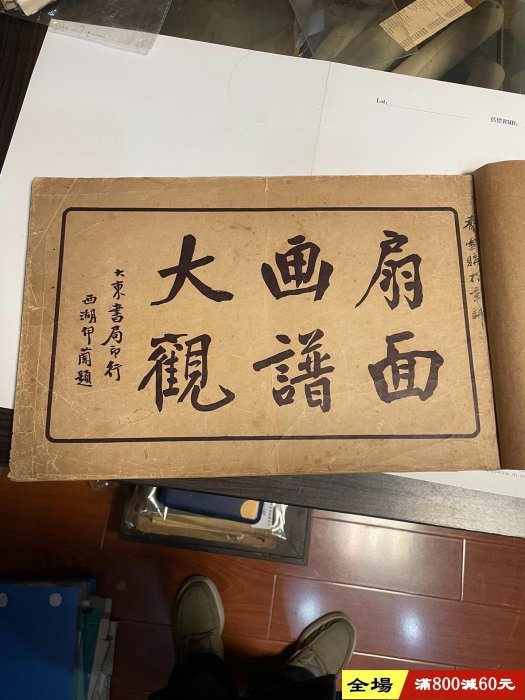 Lot:
RMB:
扇面
画譜
大觀
大東書局印行
西湖蘭題
全場
滿800減60元